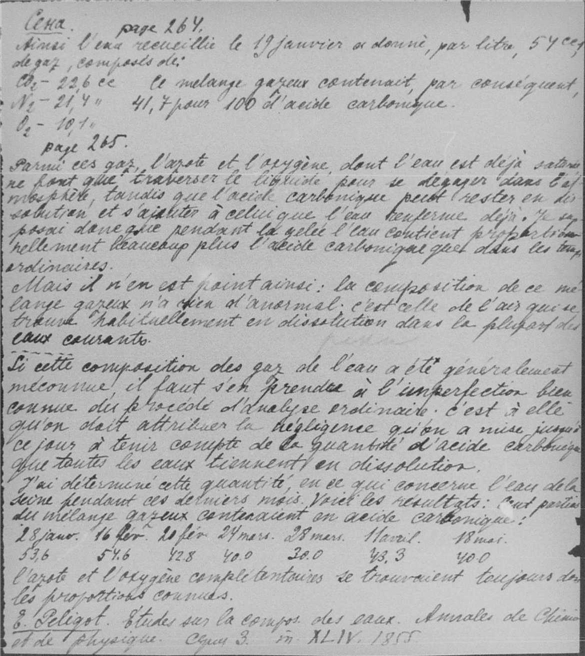 Сена. page 264.
Ainsi l'eau recueillie le 19 janvier a donné, par litre, 54 cc,
de gaz, composés de:
CO2 - 22,6 cc Ce mélange gazeux contenait, par conséquent,
N2 - 21,4 " 41,7 pour 100 d'acide carbonique.
O2 - 10,1 "
page 265.
Parmi ces gaz, l'azote et l'oxygène, dont l'eau est déjà saturée
ne font que traverser le liquide pour se dégager dans l'at
mosphère, tandis que l'acide carbonique peut rester en dis
solution et s'ajouter à celui que l'eau renferme déjà. Je sup
posai donc que pendant la gelée l'eau contient proportion
nellement beaucoup plus l'acide carbonique que dans les temps
ordinaires.
Mais il n'en est point ainsi: la composition de ce mé
lange gazeux n'a rien d'anormal. c'est celle de l'air qui se
trouve habituellement en dissolution dans la plupart des
eaux courants.
Si cette composition des gaz de l'eau a été généralement
méconnue, il faut s'en prendre à l'imperfection bien
connue du procédé d'analyse ordinaire. c'est à elle
qu'on doit attribuer la négligence qu'on a mise jusqu'à
ce jour à tenir compte de la quantité d'acide carbonique
que toutes les eaux tiennent en dissolution.
J'ai déterminé cette quantité, en ce qui concerne l'eau de la
Seine pendant ces derniers mois. Voici les résultats: Cent parties
du mélange gazeux contenaient en acide carbonique:
28 janv. 16 fév. 20 fév 24 mars. 28 mars. 11 avril. 18 mai.
53,6 54.6 42.8 40.0 30.0 43,3 40.0
l'azote et l'oxygène complétentaires se trouvaient toujours dans
les proportions connues.
E. Peligot. Etudes sur la compos. des eaux. Annales de Chimie
et de physique. Серия 3. т. XLIV. 1855